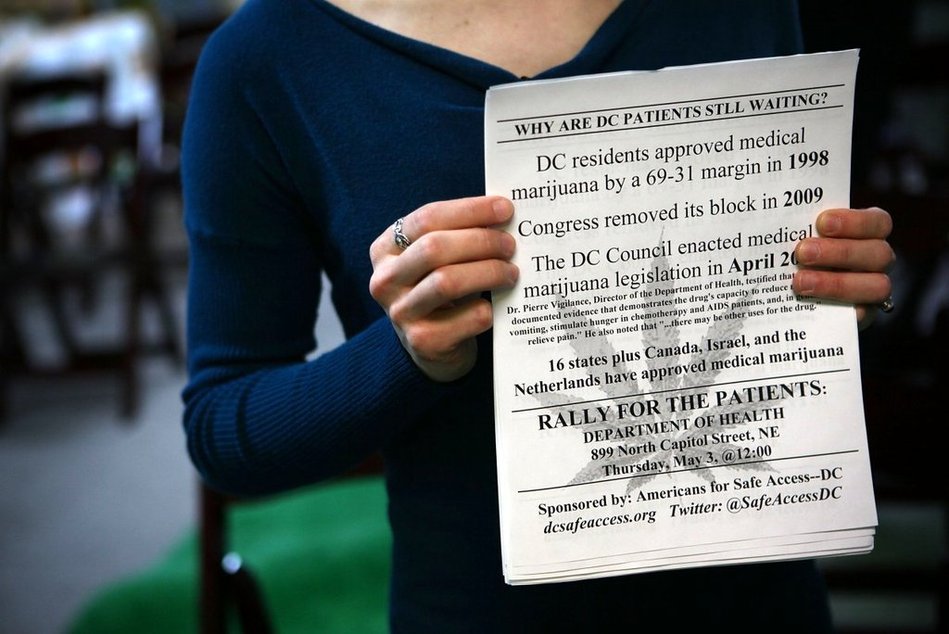 WHY ARE DC PATIENTS STLL WAITING?
DC residents approved medical
marijuana by a 69-31 margin in 1998
Congress removed its block in 2009
The DC Council enacted medical
marijuana legislation in April 20
Dr. Pierre Vigilance, Director of the Department of Health, testified that
documented evidence that demonstrates the drug's capacity to reduce
vomiting, stimulate hunger in chemotherapy and AIDS patients, and, in
relieve pain." He also noted that "...there may be other uses for the drug."
16 states plus Canada, Israel, and the
Netherlands have approved medical marijuana
RALLY FOR THE PATIENTS:
DEPARTMENT OF HEALTH
899 North Capitol Street, NE
Thursday, May 3, @12:00
Sponsored by: Americans for Safe Access--DC
dcsafeaccess.org Twitter: @SafeAccessDC